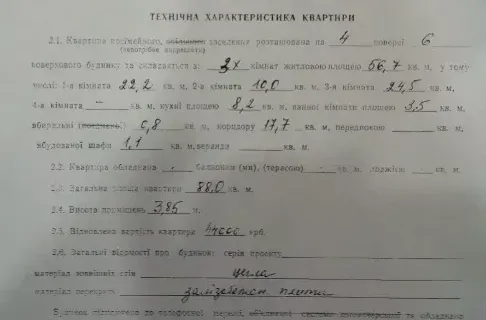 ТЕХНІЧНА ХАРАКТЕРИСТИКА КВАРТИРИ
2.1. Квартира посімейного, спільного заселення розташована на 4 поверсі 6
(непотрібне закреслити)
поверхового будинку та складається з: 3х кімнат житловою площею 56,7 кв. м, у тому
числі: 1-а кімната 22,2 кв. м, 2-а кімната 10,0 кв. м, 3-я кімната 24,5 кв. м,
4-а кімната - кв. м, кухні площею 8,2 кв. м, ванної кімнати площею 3,5 кв. м,
вбиральні 0,8 кв. м, коридору 17,7 кв. м, передпокою кв. м,
вбудованої шафи 1,1 кв. м, веранди кв. м.
2.2. Квартира обладнана - балконом (ми), (терасою) - кв. м, лоджією кв. м.
2.3. Загальна площа квартири 88,0 кв. м.
2.4. Висота приміщень 3,85 м.
2.5. Відновлена вартість квартири 44000 крб.
2.6. Загальні відомості про будинок: серія проекту
матеріал зовнішніх стін цегла
матеріал перекрить залізобетон плити
Будинок підключено до телефонної мережі, обладнано